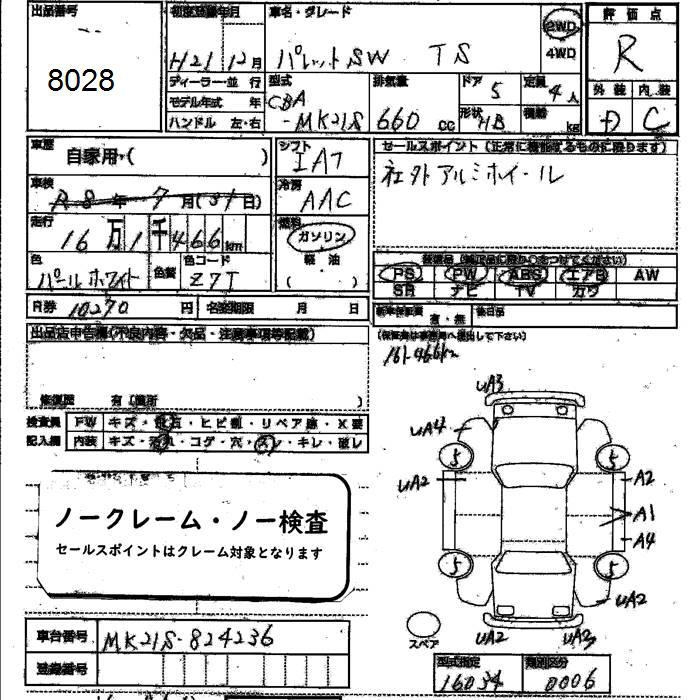 出品番号
8028
初度登録年月
H21 12月
車名・グレード
パレットSW TS
2WD
4WD
評価点
R
外装 内装
D C
ディーラー・並行
モデル年式 年
ハンドル 左・右
型式
CBA
-MK21S
排気量
660 cc
ドア
5
形状
HB
定員
4人
積載
kg
車歴
自家用・( )
車検
R8年7月(31日)
走行
16万1千466km
色
パールホワイト
色替
色コード
Z7T
シフト
IAT
冷房
AAC
燃料
ガソリン
軽油
( )
セールスポイント(正常に機能するものに限ります)
社外アルミホイール
PS PW ABS エアB AW
SR ナビ TV カワ
R券 10270 円
名変期限 月 日
新車保証書 有・無
後日品
(保証書は事務局へ提出して下さい)
161466km
出品店申告欄(不良内容・欠品・注意事項等記載)
修復歴 有(箇所
検査員
記入欄
FW キズ・飛石・ヒビ割・リペア跡・X要
内装 キズ・汚れ・コゲ・穴・スレ・キレ・破レ
ノークレーム・ノー検査
セールスポイントはクレーム対象となります
UA3
UA4
5
5
UA2
A2
A1
A4
5
5
UA2
スペア
UA2
UA3
車台番号
MK21S-824236
登録番号
型式指定
16034
類別区分
0006